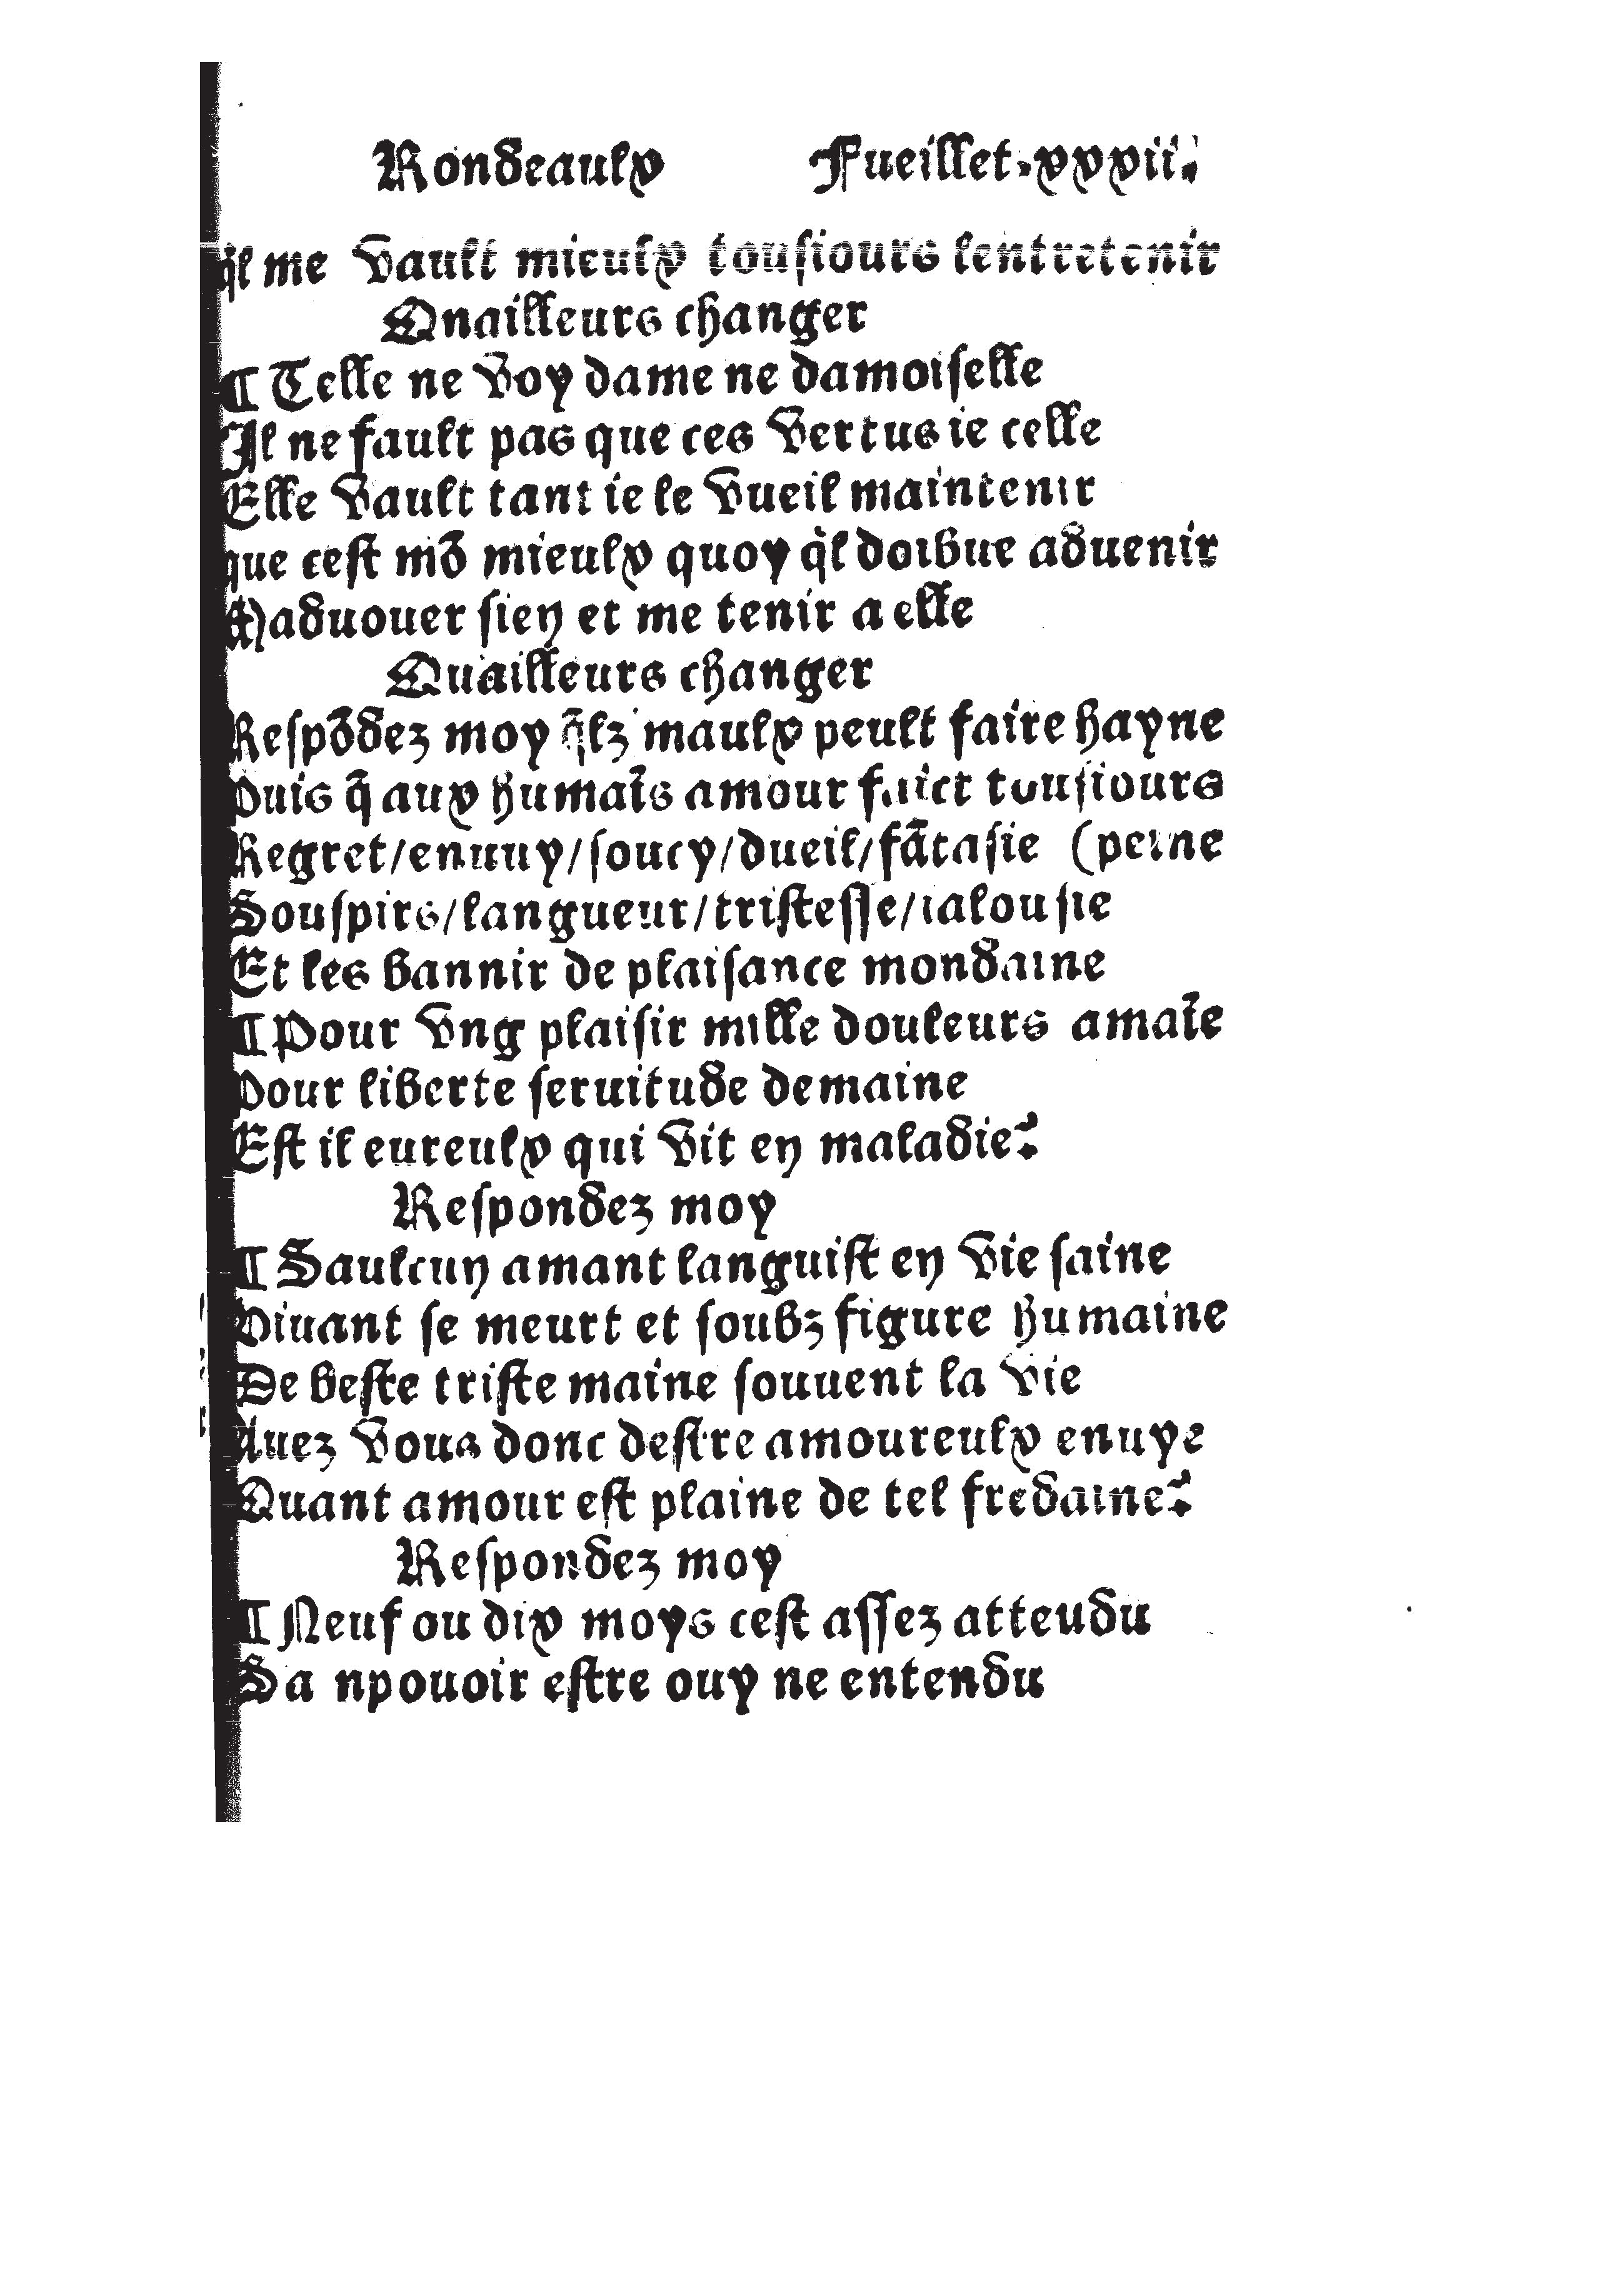 Rondeaulx Fueillet.xxxii.
q̃l me vault mieulx tousiours lentretenir
Qnailleurs changer
¶ Telle ne voy dame ne damoiselle
Il ne fault pas que ces vertus ie celle
Elle vault tant ie le vueil maintenir
que cest mõ mieulx quoy q̃l doibue aduenir
Maduouer sien et me tenir a elle
Quailleurs changer
Respõdez moy q̃lz maulx peult faire hayne
Puis q̃ aux humaĩs amour faict tousiours
Regret/ennuy/soucy/dueil/fãtasie (peine
Souspirs/langueur/tristesse/ialousie
Et les bannir de plaisance mondaine
¶ Pour vng plaisir mille douleurs amaĩe
Pour liberte seruitude demaine
Est il eureulx qui vit en maladie?
Respondez moy
¶ Saulcun amant languist en vie saine
Viuant se meurt et soubz figure humaine
De beste triste maine souuent la vie
Auez vous donc destre amoureulx enuye
Quant amour est plaine de tel fredaine?
Respondez moy
¶ Neuf ou dix moys cest assez atteudu
Sa npouoir estre ouy ne entendu